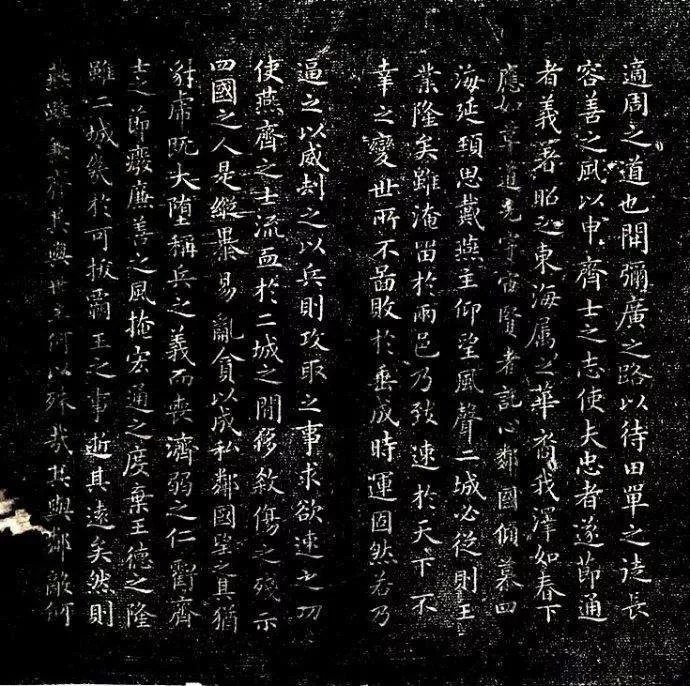 適周之道也開彌廣之路以待田單之徒長
容善之風以申齊士之志使夫忠者遂節通
者義著昭之東海属之華裔我澤如春下
應如草道光宇宙賢者託心鄰國傾慕四
海延頸思戴燕主仰望風聲二城必從則王
業隆矣雖淹留於兩邑乃致速於天下不
幸之變世所不啚敗於垂成時運固然若乃
逼之以威劫之以兵則攻取之事求欲速之功
使燕齊之士流血於二城之閒侈敘傷之殘示
四國之人是縱暴易亂貪以成私鄰國望之其猶
豺虎既大墮稱兵之義而喪濟弱之仁虧齊
士之節廢廉善之風掩宏通之度棄王德之隆
雖二城幾於可拔霸王之事逝其遠矣然則
燕雖兼齊其與世主何以殊哉其與鄰敵何